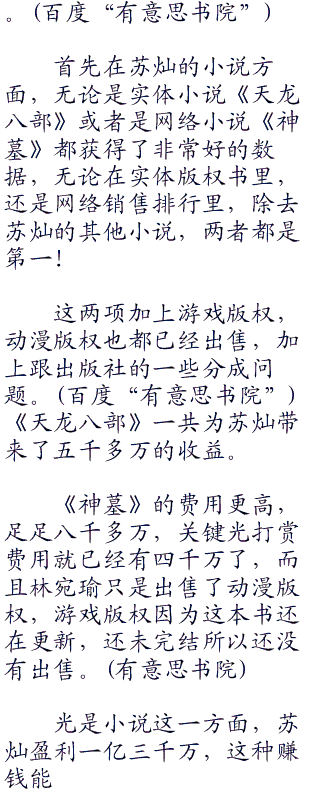 。(百度“有意思书院”)
首先在苏灿的小说方
面，无论是实体小说《天龙
八部》或者是网络小说《神
墓》都获得了非常好的数
据，无论在实体版权书里，
还是网络销售排行里，除去
苏灿的其他小说，两者都是
第一!
这两项加上游戏版权，
动漫版权也都已经出售，加
上跟出版社的一些分成问
题。(百度“有意思书院”)
《天龙八部》一共为苏灿带
来了五千多万的收益。
《神墓》的费用更高，
足足八千多万，关键光打赏
费用就已经有四千万了，而
且林宛瑜只是出售了动漫版
权，游戏版权因为这本书还
在更新，还未完结所以还没
有出售。(有意思书院)
光是小说这一方面，苏
灿盈利一亿三千万，这种赚
钱能